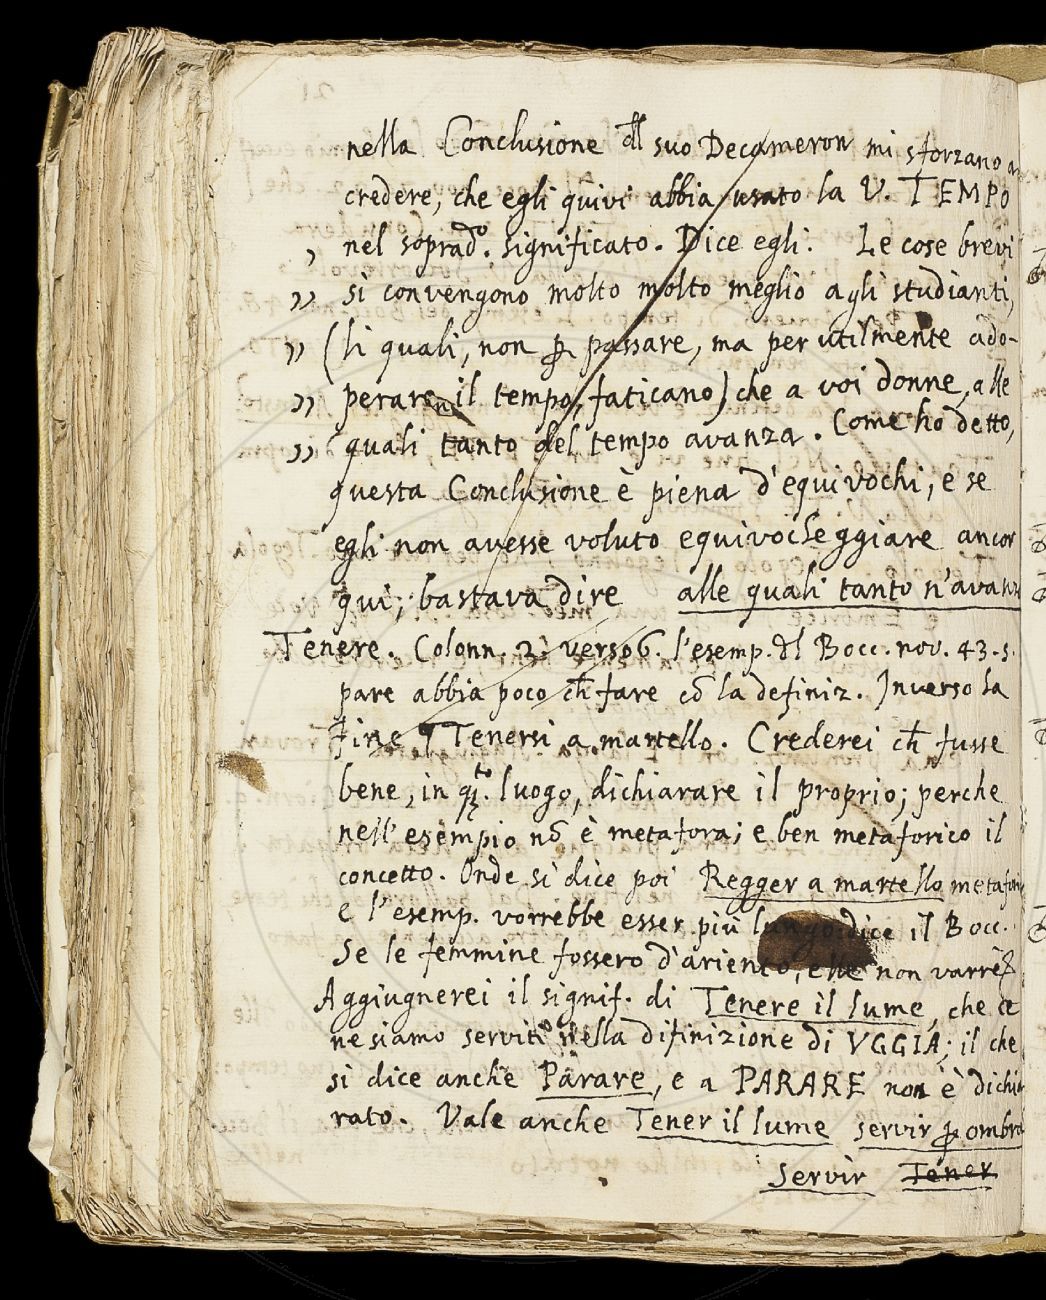 nella Conclusione dl suo Decameron mi sforzano a
credere, che egli quivi abbia usato la V. TEMPO
, nel soprado. significato. Dice egli. Le cose brevi
,, si convengono molto molto meglio agli studianti,
,, (li quali, non p passare, ma per utilmente ado-
,, perare il tempo, faticano) che a voi donne, alle
,, quali tanto del tempo avanza. Come ho detto,
questa Conclusione è piena d'equivochi, e se
egli non avesse voluto equivocheggiare ancor
qui, bastava dire alle quali tanto n'avanz
Tenere. Colonn. 2. verso 6. l'esemp. dl Bocc. nov. 43. s.
pare abbia poco ch fare cō la definiz. Inverso la
fine ¶ Tenersi a martello. Crederei ch fusse
bene, in qto. luogo, dichiarare il proprio; perche
nell'esempio nō è metafora; e ben metaforico il
concetto. Onde si dice poi Regger a martello metafor
e l'esemp. vorrebbe esser più lungo: dice il Bocc.
Se le femmine fossero d'ariento, elle non varre
Aggiugnerei il signif. di Tenere il lume, che ce
ne siamo serviti nella difinizione di VGGIA; il che
si dice anche Parare, e a PARARE non è dichia
rato. Vale anche Tener il lume servir p ombra
Servir Tener